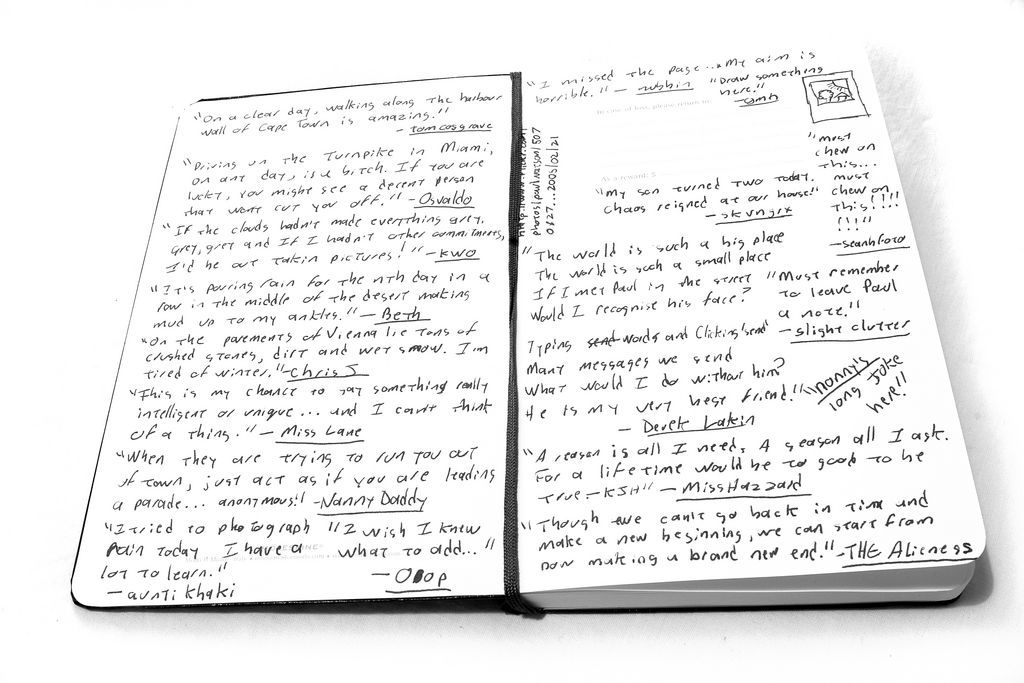 "On a clear day, walking along the harbour
wall of Cape Town is amazing."
- tomcosgrave
"Driving on the Turnpike in Miami,
on any day, is a bitch. If you are
lucky, you might see a decent person
that wont cut you off." - Osvaldo
"If the clouds hadn't made everything grey,
grey, grey and If I hadn't other commitments,
I'd be out takin pictures!" - KWO
"It's pouring rain for the nth day in a
row in the middle of the desert making
mud up to my ankles." - Beth
"On the pavements of Vienna lie tons of
crushed stones, dirt and wet snow. I'm
tired of winter." - Chris J
"This is my chance to say something really
intelligent or unique... and I can't think
of a thing." - Miss Lane
"When they are trying to run you out
of town, just act as if you are leading
a parade... anonymous!" - Nanny Daddy
"I tried to photograph
Pain today I have a
lot to learn."
- aunti Khaki
"I wish I knew
what to add..."
- Obop
"I missed the page... My aim is
horrible." - nubbin
"Draw something
here."
In case of loss, please return to:
As a reward: $
photos/paulwatson/507
0827...2005/02/21
"My son turned two today.
Chaos reigned at our house!"
- skvngix
"must
chew on
this...
must
chew on
this!!!!
!!!!"
- seanhfoto
"The world is such a big place
The world is such a small place
If I met Paul in the street
Would I recognise his face?
Typing send words and Clicking 'send'
Many messages we send
What would I do without him?
He is my very best friend!"
- Derek Lakin
"Must remember
to leave Paul
a note."
- slight clutter
"nonny's
long joke
here!!
"A reason is all I need, A season all I ask.
For a lifetime would be to good to be
true - KSH" - MissHazzard
"Though we can't go back in time und
make a new beginning, we can start from
now making a brand new end." - THE Alieness